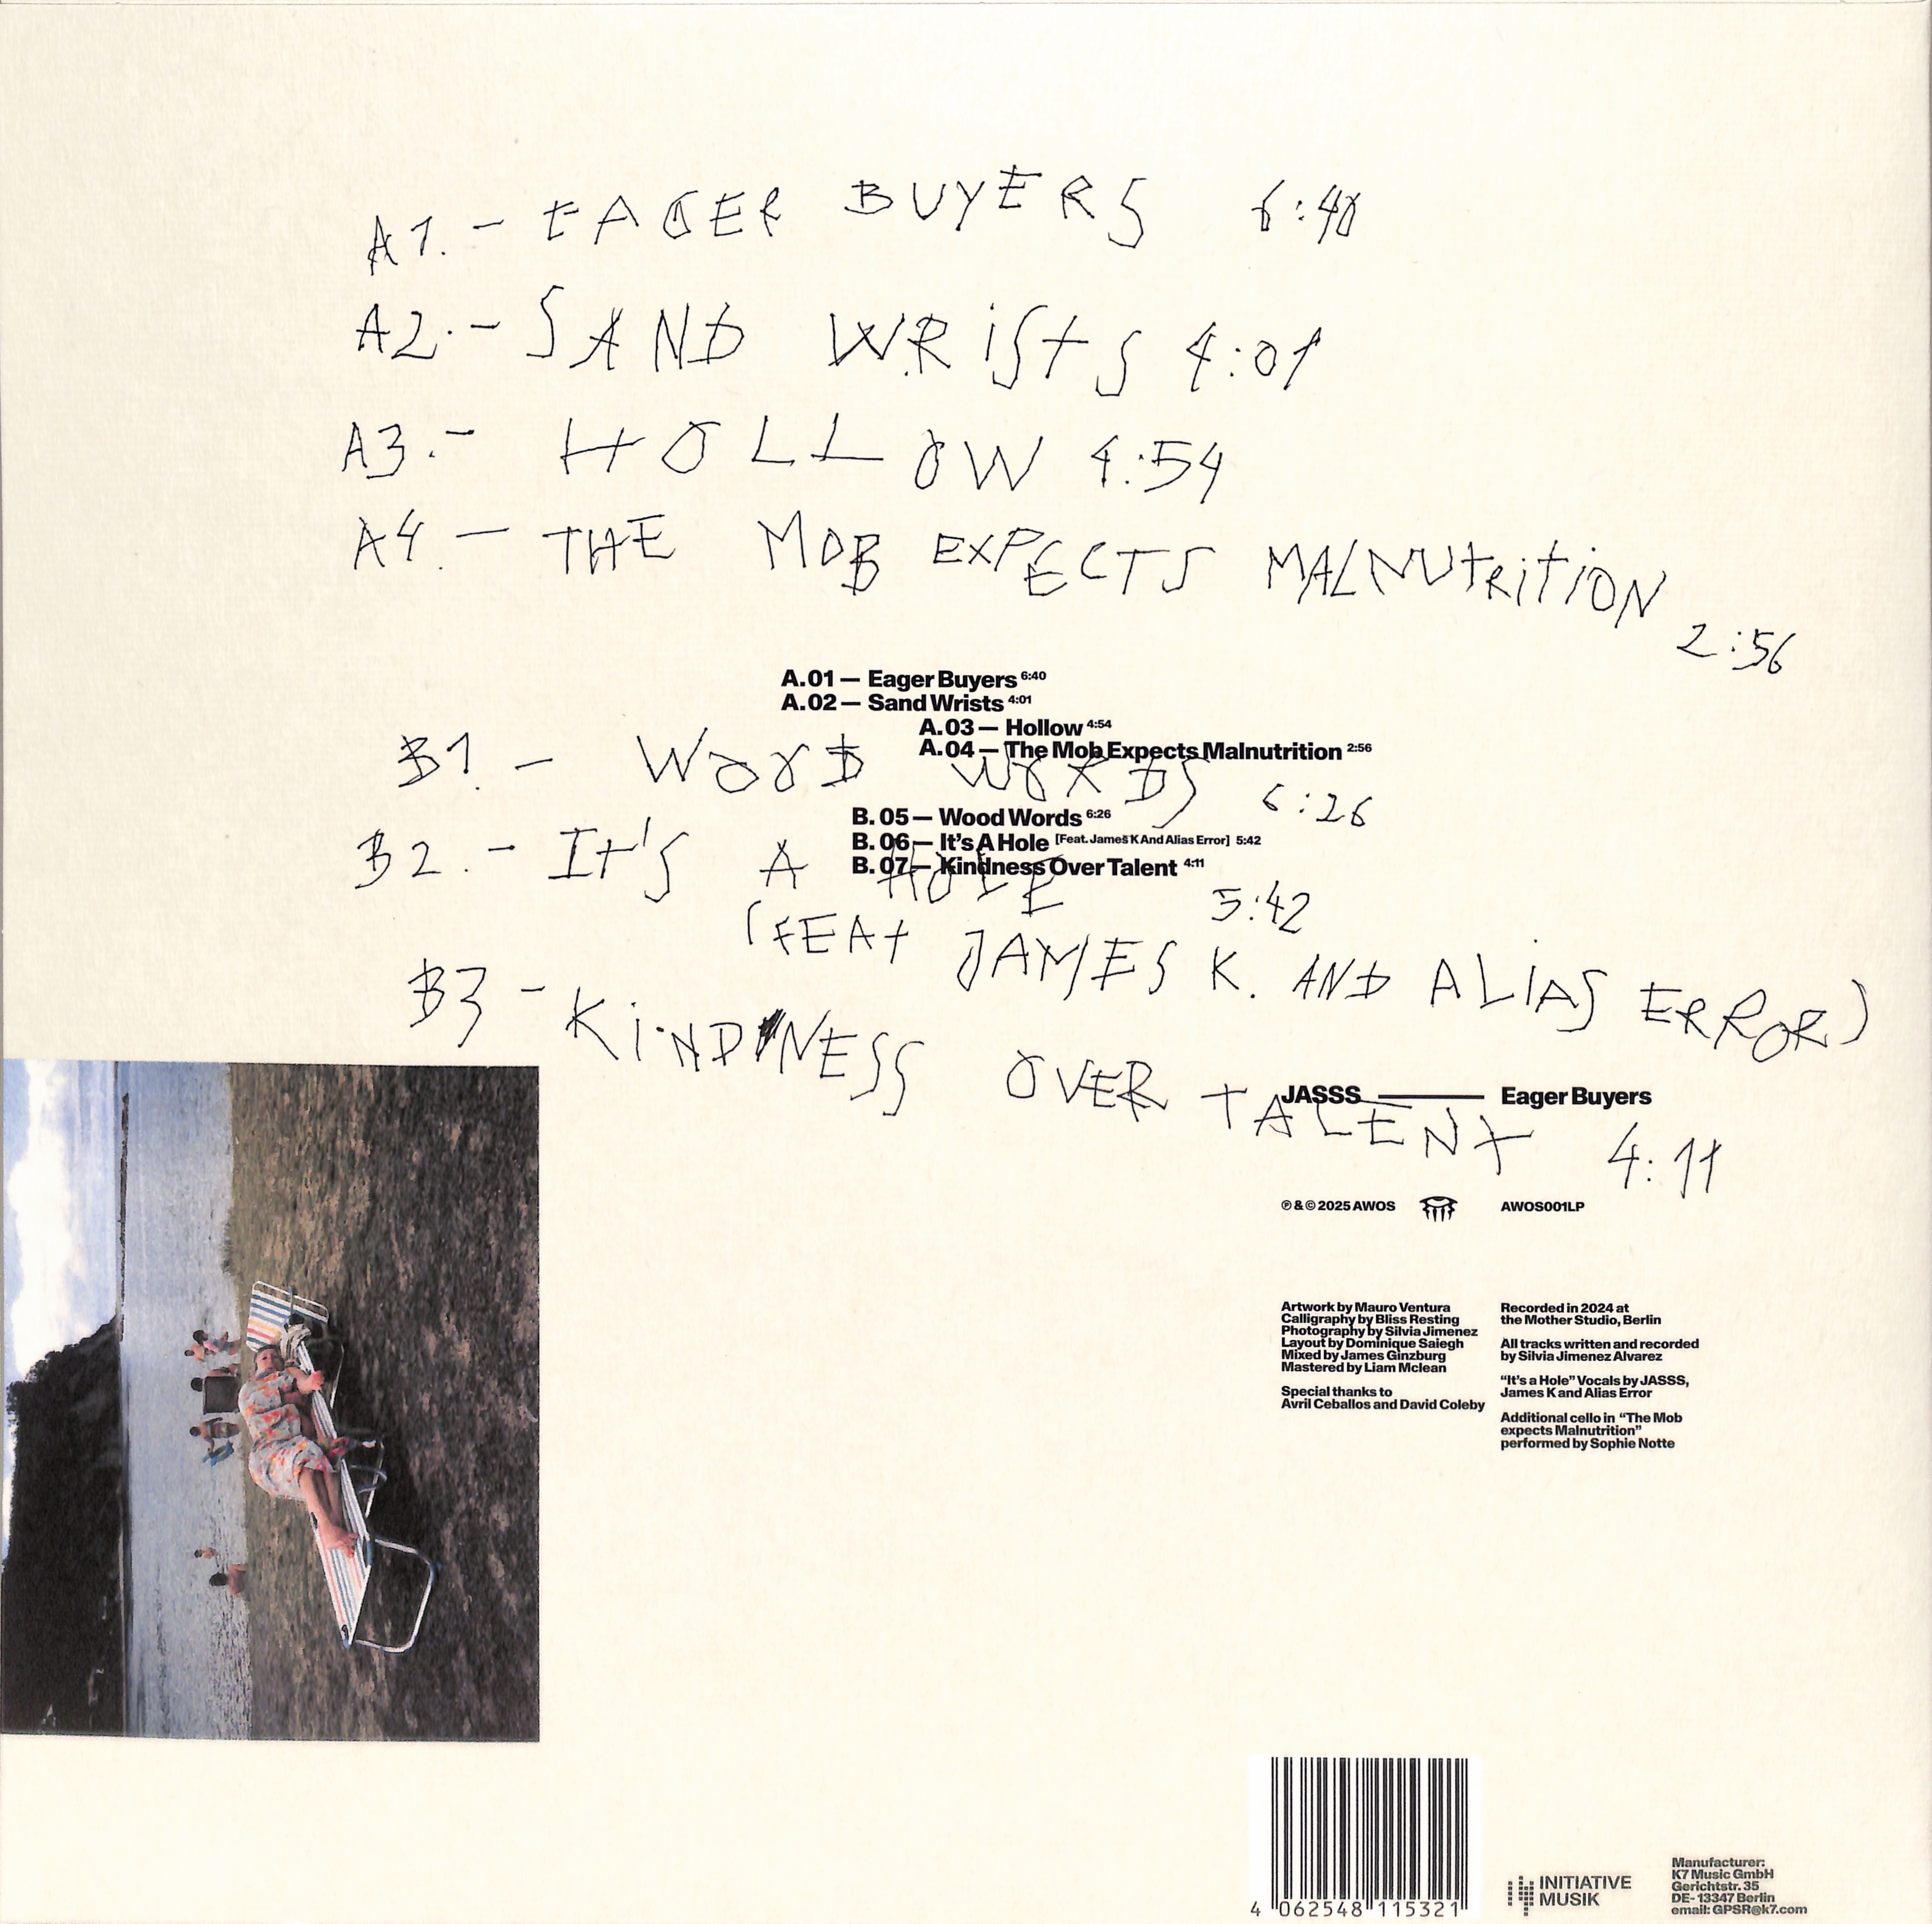 A1.- EAGER BUYERS 6:40
A2.- SAND WRiStS 4:01
A3.- HOLLOW 4:54
A4.- THE MOB EXPECTS MALNUtRitiON
2:56
A.01 — Eager Buyers 6:40
A.02 — Sand Wrists 4:01
A.03 — Hollow 4:54
A.04 — The Mob Expects Malnutrition 2:56
B1.- WOOD WORDS 6:26
B.05 — Wood Words 6:26
B.06 — It's A Hole [Feat. James K And Alias Error] 5:42
B.07 — Kindness Over Talent 4:11
B2.- It's A HOLE 5:42
(FEAt JAMES K. AND ALiAS ERROR)
B3 - KiNDNESS OVER tALENt 4:11
JASSS — Eager Buyers
℗ & © 2025 AWOS AWOS001LP
Artwork by Mauro Ventura
Calligraphy by Bliss Resting
Photography by Silvia Jimenez
Layout by Dominique Saiegh
Mixed by James Ginzburg
Mastered by Liam Mclean
Special thanks to
Avril Ceballos and David Coleby
Recorded in 2024 at
the Mother Studio, Berlin
All tracks written and recorded
by Silvia Jimenez Alvarez
“It's a Hole” Vocals by JASSS,
James K and Alias Error
Additional cello in “The Mob
expects Malnutrition”
performed by Sophie Notte
4 062548 115321
INITIATIVE
MUSIK
Manufacturer:
K7 Music GmbH
Gerichtstr. 35
DE-13347 Berlin
email: GPSR@k7.com